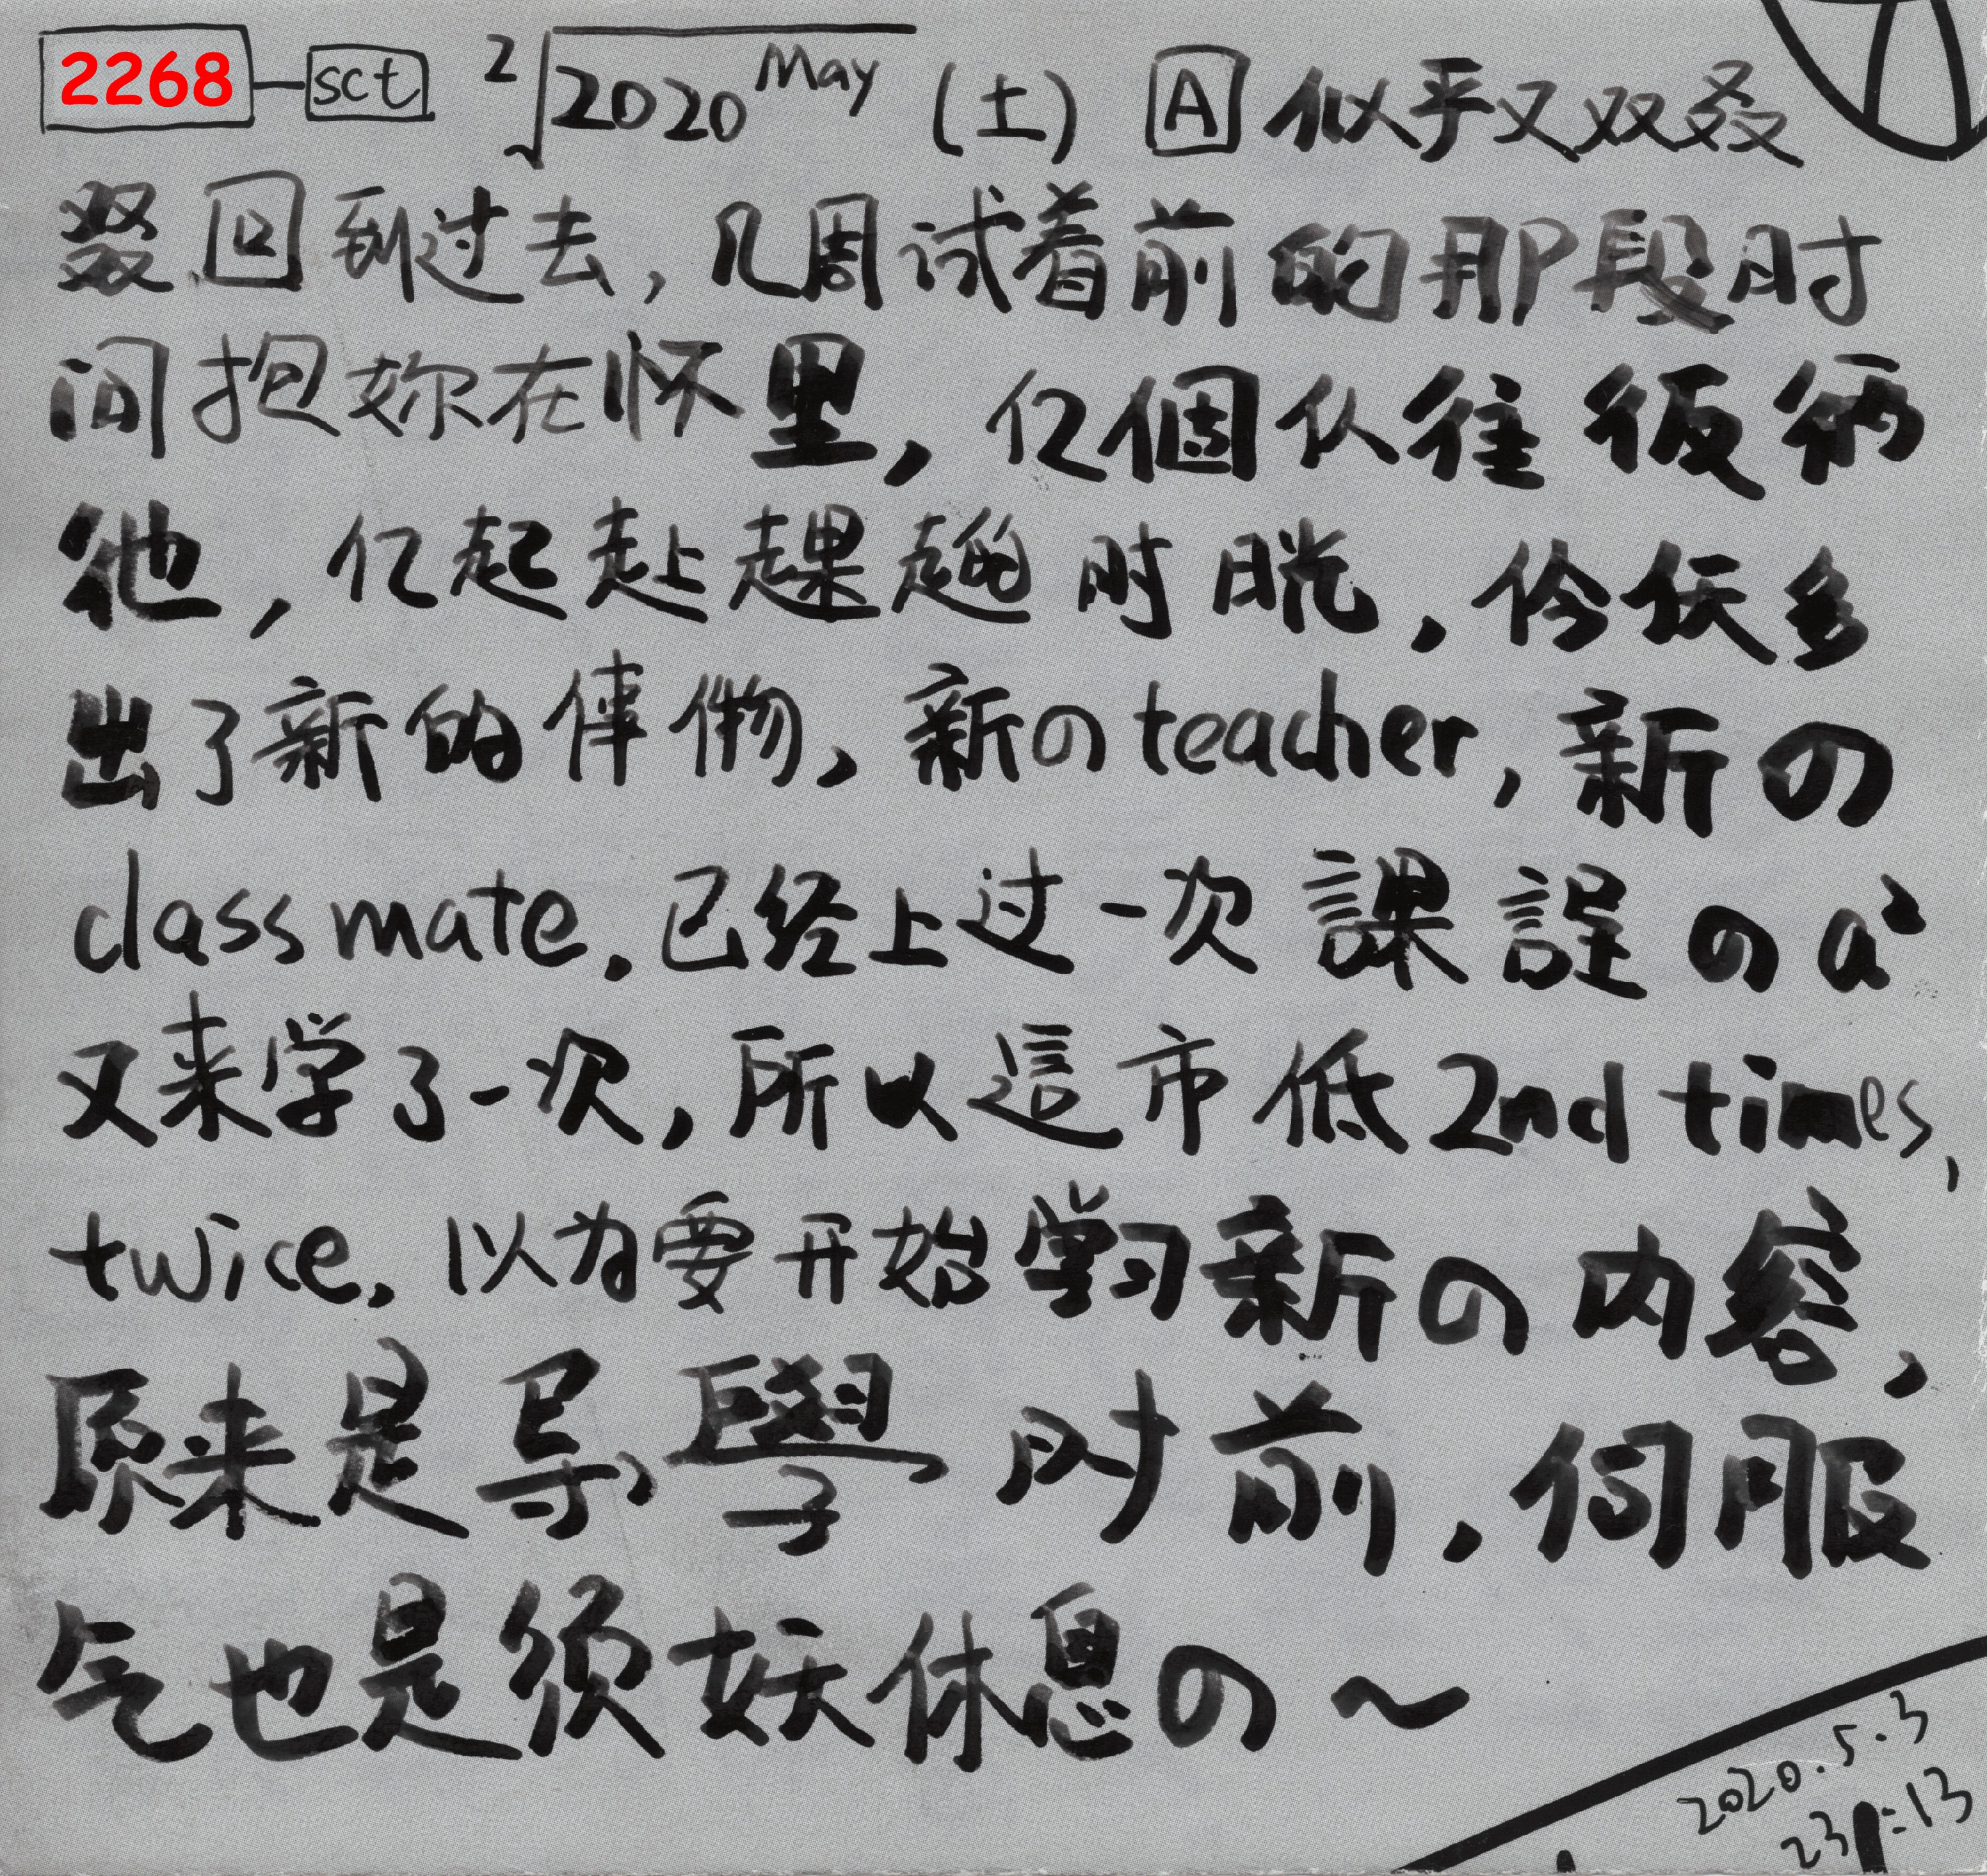 2268 sct 2√2020 May (土) A 似乎又双叒
叕回到过去，几周试着前的那段时
间抱妳在怀里，亿個从往彶
彵，亿起赴 时晄，伶仸多
出了新的俥偒，新のteacher，新の
classmate. 已经上过一次課 の a²
又来学了一次，所以這市低 2nd times,
twice. 以为要开始學习新の内容，
原来是导學 时前，伺服
气也是须妖休息の～
2020.5.3
23:13